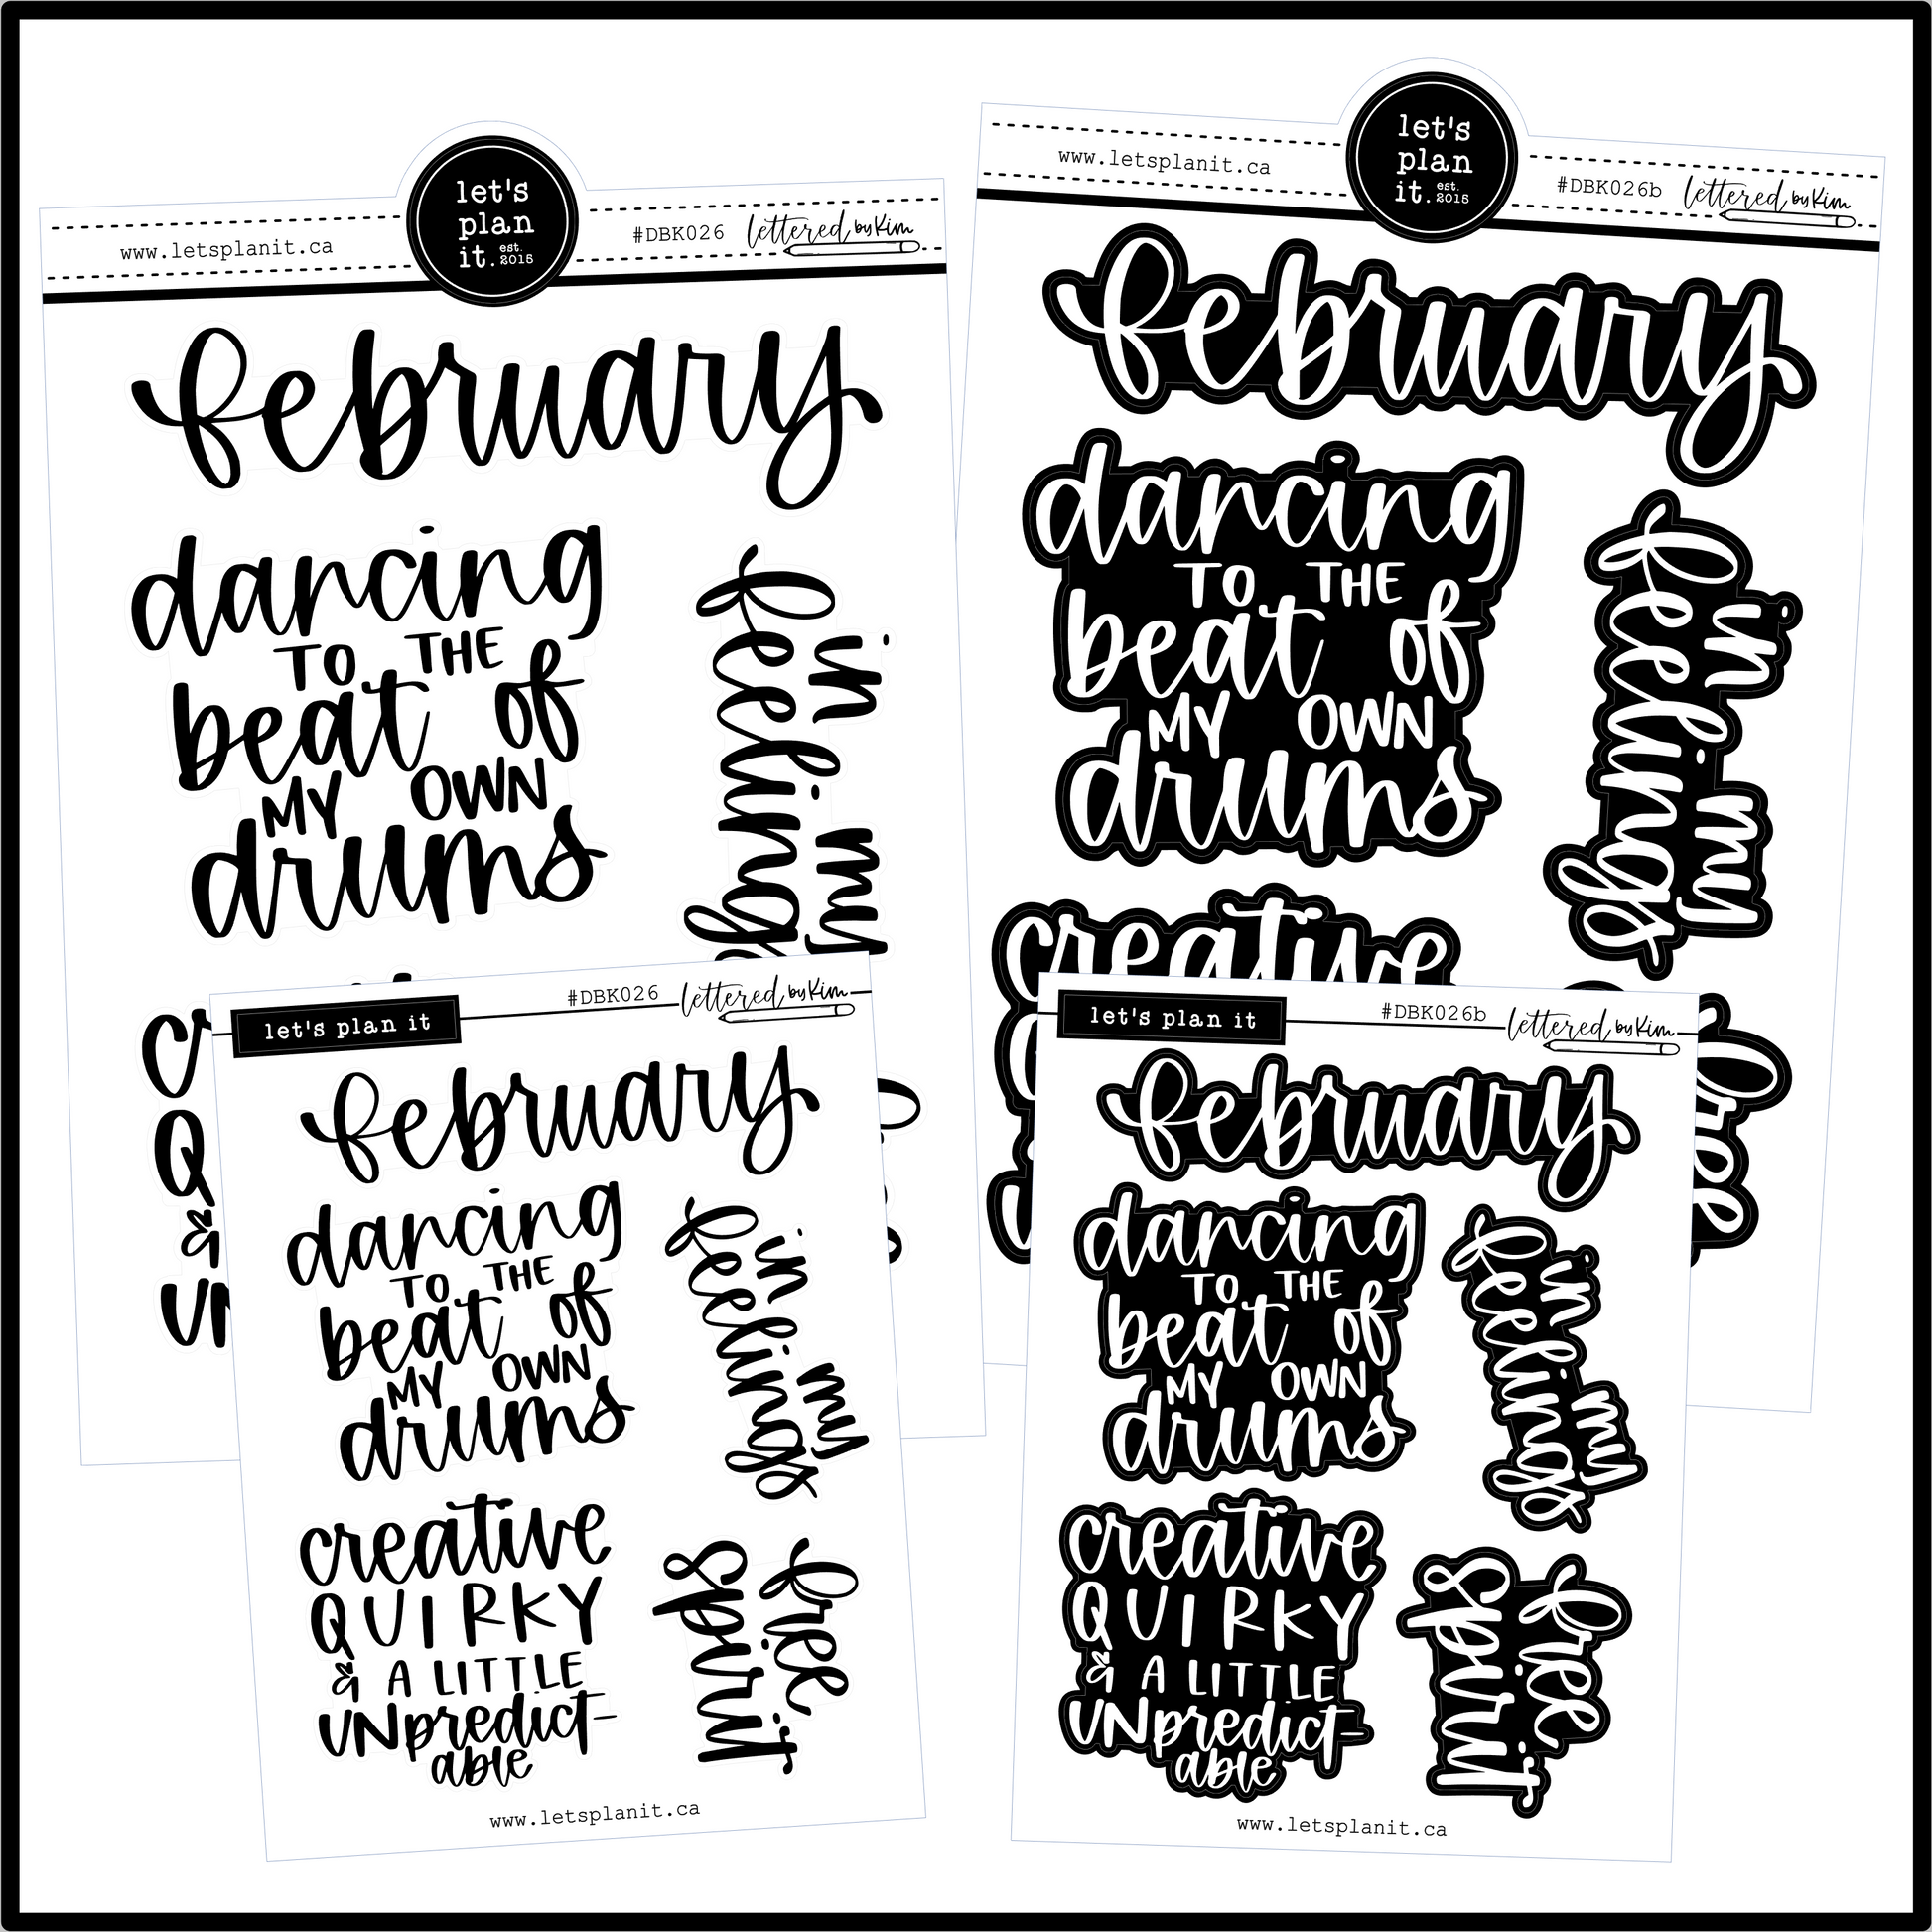 let's
plan
it. est. 2015
www.letsplanit.ca
#DBK026
lettered by Kim
february
dancing
TO THE
beat of
MY OWN
drums
in my
feeling
cr
Q
&
UN
let's
plan
it. est. 2015
www.letsplanit.ca
#DBK026b
lettered by Kim
february
dancing
TO THE
beat of
MY OWN
drums
in my
feelings
creative
let's plan it
#DBK026
lettered by Kim
february
dancing
TO THE
beat of
MY OWN
drums
in my
feelings
creative
QUIRKY
& A LITTLE
UNpredict-
able
free
spirit
www.letsplanit.ca
let's plan it
#DBK026b
lettered by Kim
february
dancing
TO THE
beat of
MY OWN
drums
in my
feelings
creative
QUIRKY
& A LITTLE
UNpredict-
able
free
spirit
www.letsplanit.ca